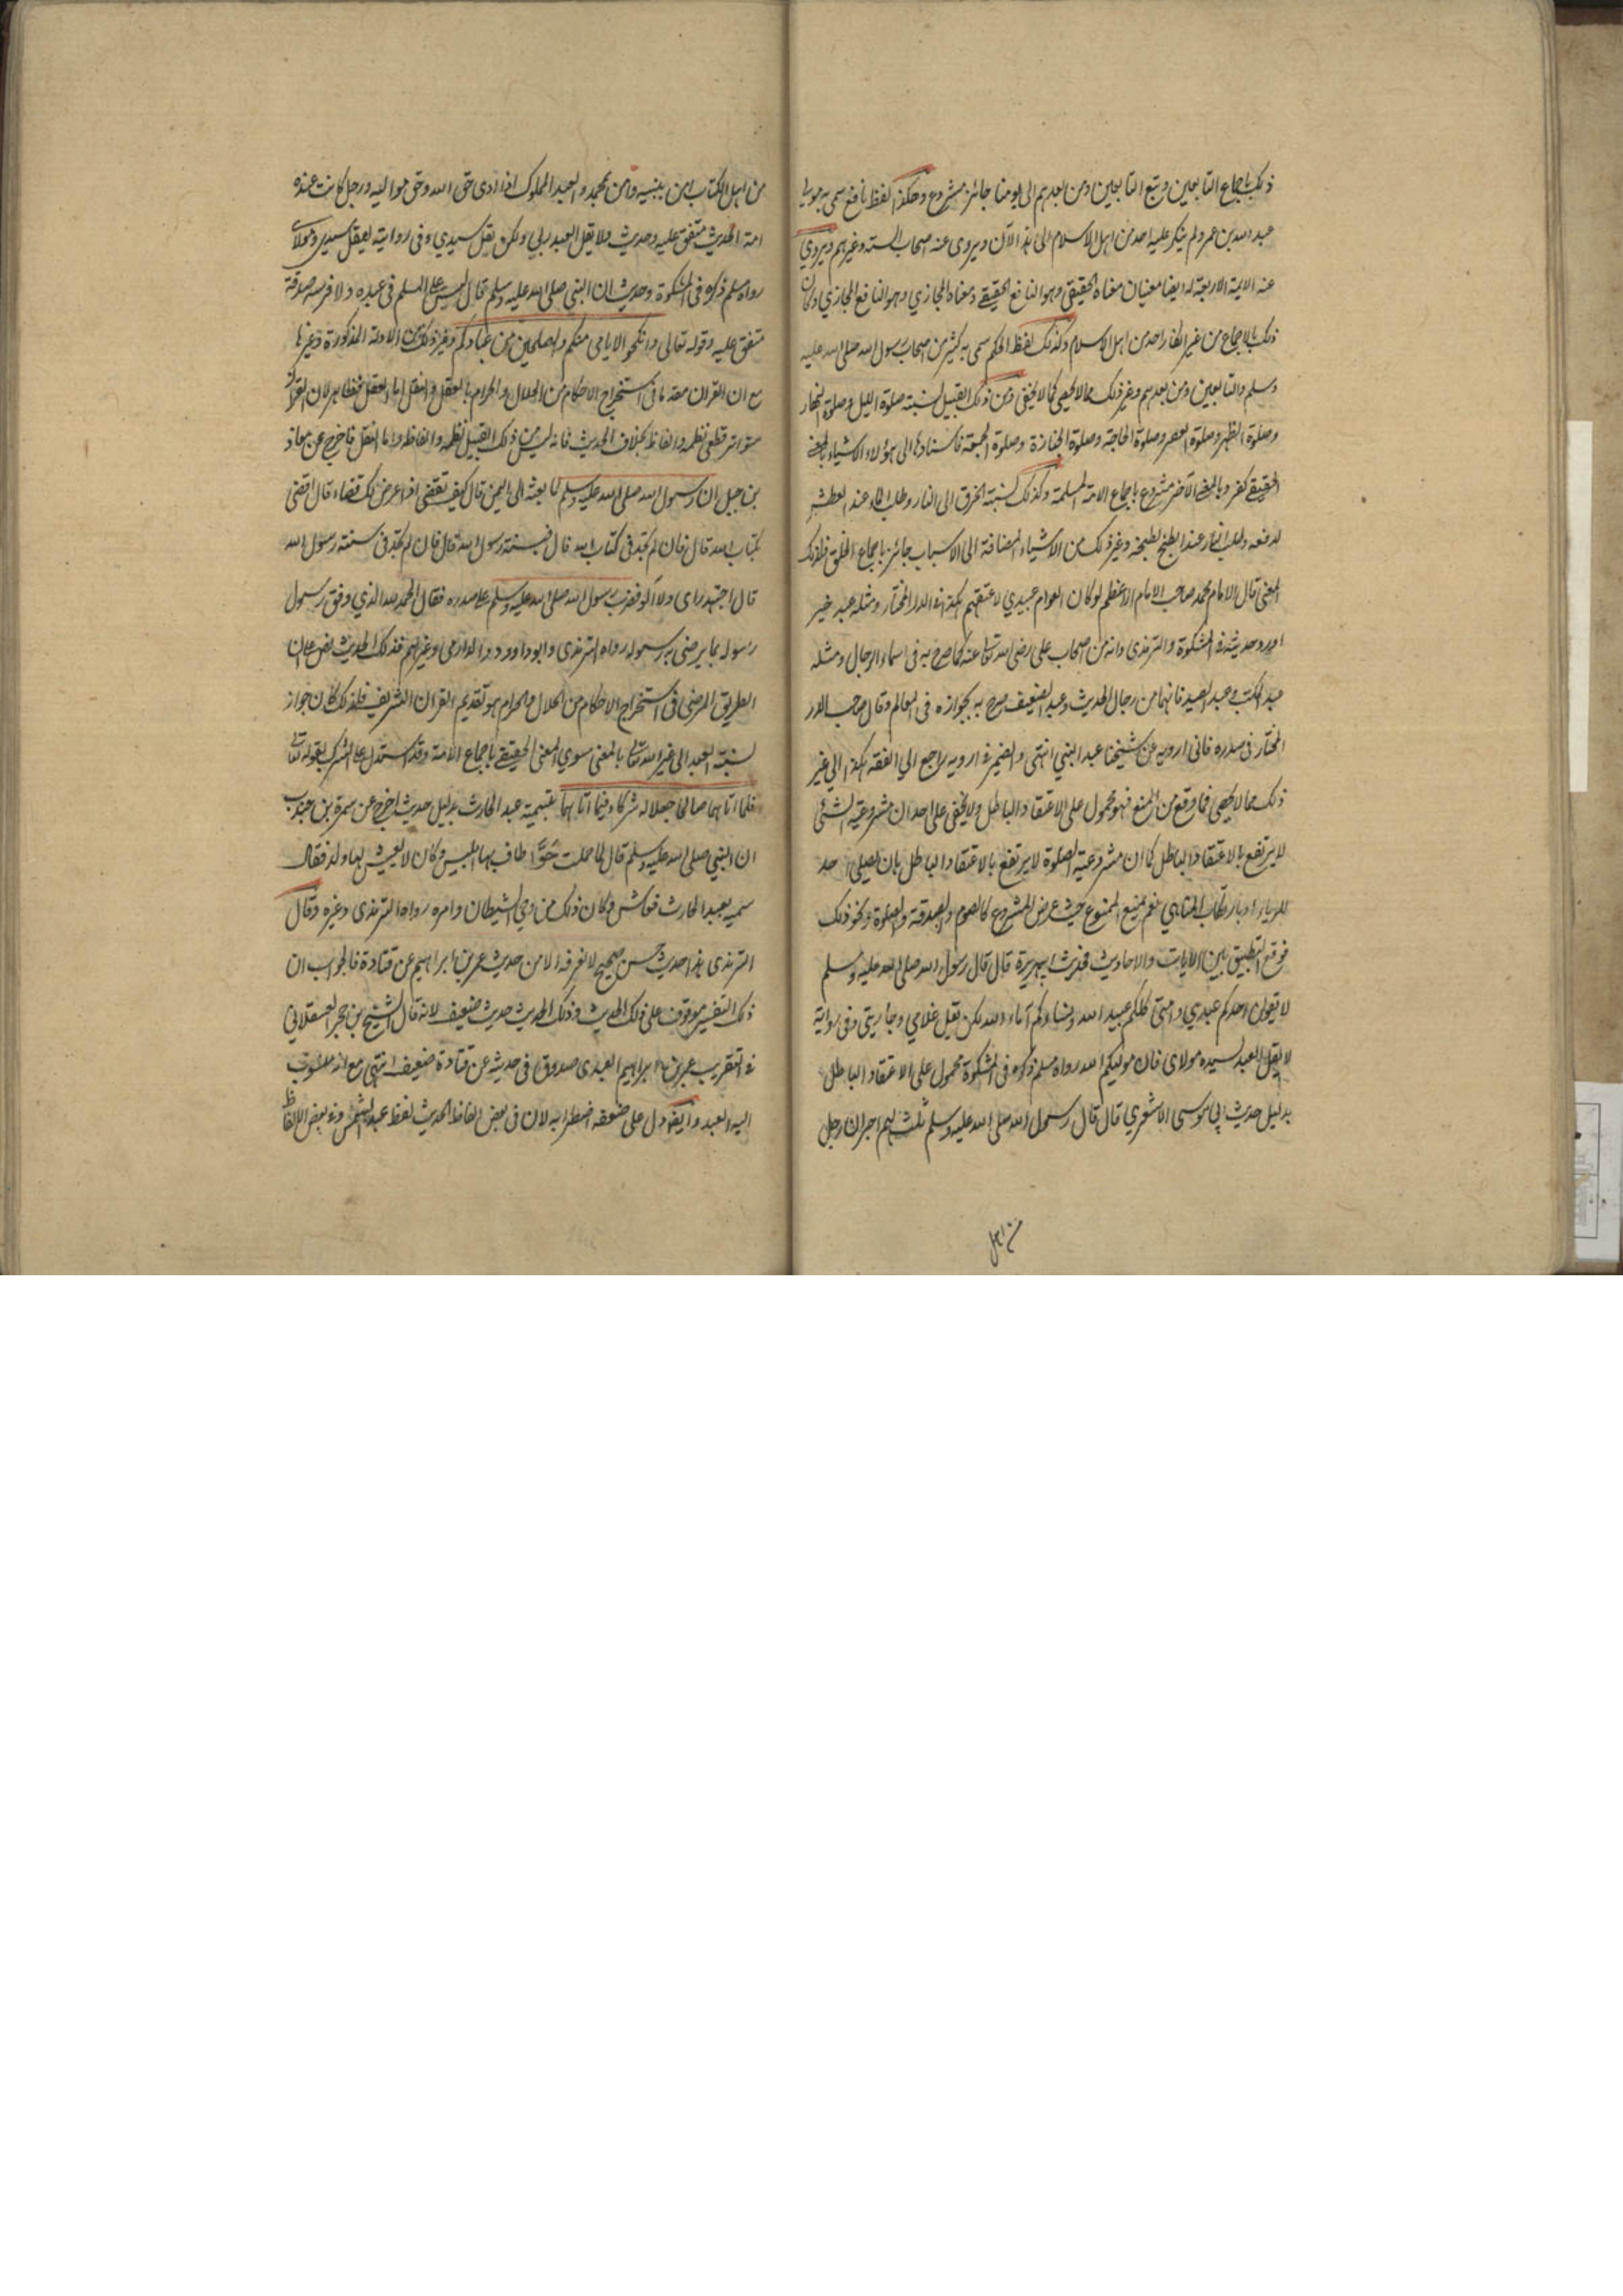 ذلك باجماع التابعين وتبع التابعين ومن بعدهم الى يومنا جائز مشروع وهكذا لفظ نافع سمى به مولى
عبد الله بن عمر ولم ينكر عليه احد من اهل الاسلام الى هذا الآن ويروى عنه اصحاب الستة وغيرهم ويروي
عنه الايمة الاربعة له ايضا معنيان معناه الحقيقي وهو النافع الحقيقے ومعناه المجازي وهو النافع المجازي وكان
ذلك بالاجماع من غير انكار احد من اهل الاسلام وكذلك لفظ الحكم سمى به كثير من اصحاب رسول الله صلى الله عليه
وسلم والتابعين ومن بعدهم وغير ذلك مما لا يحصى كما لا يخفى ومن ذلك القبيل نسبته صلوة الليل وصلوة النهار
وصلوة الظهر وصلوة العصر وصلوة الحاجة وصلوة الجنازة وصلوة الجمعة فاسنادها الى هؤلاء الاشياء بالمعنے
الحقيقے كفر وبالمعنے الآخر مشروع باجماع الامة المسلمة وكذلك نسبته الحرق الى النار وطلب الماء عند العطش
لدفعه وطلب النار عند الطبخ لطبخه وغير ذلك من الاشياء المضافة الى الاسباب جائز باجماع الخلق فلذلك
المعنى قال الامام محمد صاحب الامام الاعظم لو كان العوام عبيدي لاعتقتهم هكذا في الدر المختار ومثله عبد خير
اورد حديثه في المشكوة والترمذى وانه من اصحاب على رضى الله تعالى عنه كما صرح به فى اسماء الرجال ومثله
عبد المطلب وعبد العبيد فانهما من رجال الحديث وعبد الضعيف صرح به بجوازه فى العالم وقال صاحب الدر
المختار فى صدره فانى ارويه عن شيخنا عبد النبي انتهى والضمير في ارويه راجع الي الفقه هكذا الي غير
ذلك مما لا يحصى فما وقع من المنع فهو محمول على الاعتقاد الباطل ولا يخفى على احد ان مشروعية الشئ
لا يرتفع بالاعتقاد الباطل كما ان مشروعية الصلوة لا يرتفع بالاعتقاد الباطل بان يصلى احد
للرياء او بارتكاب المناهي نعم يمنع الممنوع حيث عرض المشروع كالصوم والصدقة والصلوة ونحو ذلك
فوقع التطبيق بين الايات والاحاديث فحديث ابي هريرة قال قال رسول الله صلى الله عليه وسلم
لا يقولن احدكم عبدي وامتي كلكم عبيد الله ونساءكم آماء الله لكن ليقل غلامي وجاريتي وفى رواية
لا يقل العبد لسيده مولاى فان موليكم الله رواه مسلم ذكره فى المشكوة محمول على الاعتقاد الباطل
بدليل حديث ابي موسى الاشعري قال قال رسول الله صلى الله عليه وسلم ثلثة لهم اجران رجل
من اهل
من اهل الكتاب امن بنبيه وآمن بمحمد والعبد المملوك اذا ادى حق الله وحق مواليه ورجل كانت عنده
امة الحديث متفق عليه وحديث ولا يقل العبد ربي ولكن يقل سيدي وفى رواية ليقل سيدي ومولاى
رواه مسلم ذكره فى المشكوة وحديث ان النبي صلى الله عليه وسلم قال ليس على المسلم فى عبده ولا فرسه صدقة
متفق عليه وقوله تعالى وانكحوا الايامى منكم والصلحين من عبادكم وغير ذلك من الادلة المذكورة وغيرها
مع ان القران مقدما فى استخراج الاحكام من الحلال والحرام بالعقل والنقل اما العقل فظاهر لان القران
متواتر قطعى نظمه والفاظه بخلاف الحديث فانه ليس من ذلك القبيل نظمه والفاظه واما النقل فاخرج عن معاذ
بن جبل ان رسول الله صلى الله عليه وسلم لما بعثه الى اليمن قال كيف تقضى اذا عرض لك قضاء قال اقضى
بكتاب الله قال فان لم تجد فى كتاب الله قال فبسنة رسول الله قال فان لم تجد فى سنة رسول الله
قال اجتهد براى ولا آلو فضرب رسول الله صلى الله عليه وسلم على صدره فقال الحمد لله الذي وفق رسول
رسوله بما يرضى به رسوله رواه الترمذى وابو داود والدارمى وغيرهم فذلك الحديث نص على ان
الطريق المرضى فى استخراج الاحكام من الحلال والحرام هو تقديم القران الشريف فلذلك كان جواز
نسبته العبد الى غير الله تعالى بالمعنى سوي المعنى الحقيقے باجماع الامة وقد استدل على الشرك بقوله تعالى
فلما اتاهما صالحا جعلا له شركاء فيما اتاهما بتسمية عبد الحارث بدليل حديث اخرج عن سمرة بن جندب
ان النبي صلى الله عليه وسلم قال لما حملت حوّا طاف بها ابليس وكان لا يعيش لها ولد فقال
سميه بعبد الحارث فعاش وكان ذلك من وحي الشيطان وامره رواه الترمذى وغيره وقال
الترمذى هذا حديث حسن صحيح لا نعرفه الا من حديث عمر بن ابراهيم عن قتادة فالجواب ان
ذلك التفسير موقوف على ذلك الحديث وذلك الحديث حديث ضعيف لانه قال الشيخ بن حجر العسقلاني
في التقريب عمر بن ابراهيم العبدى صدوق فى حديثه عن قتادة ضعيف انتهى مع انه منسوب
اليه العبد وايضا دل على ضعفه اضطرابه لان فى بعض الفاظ الحديث لفظ عبد الشمس وفى بعض الالفاظ